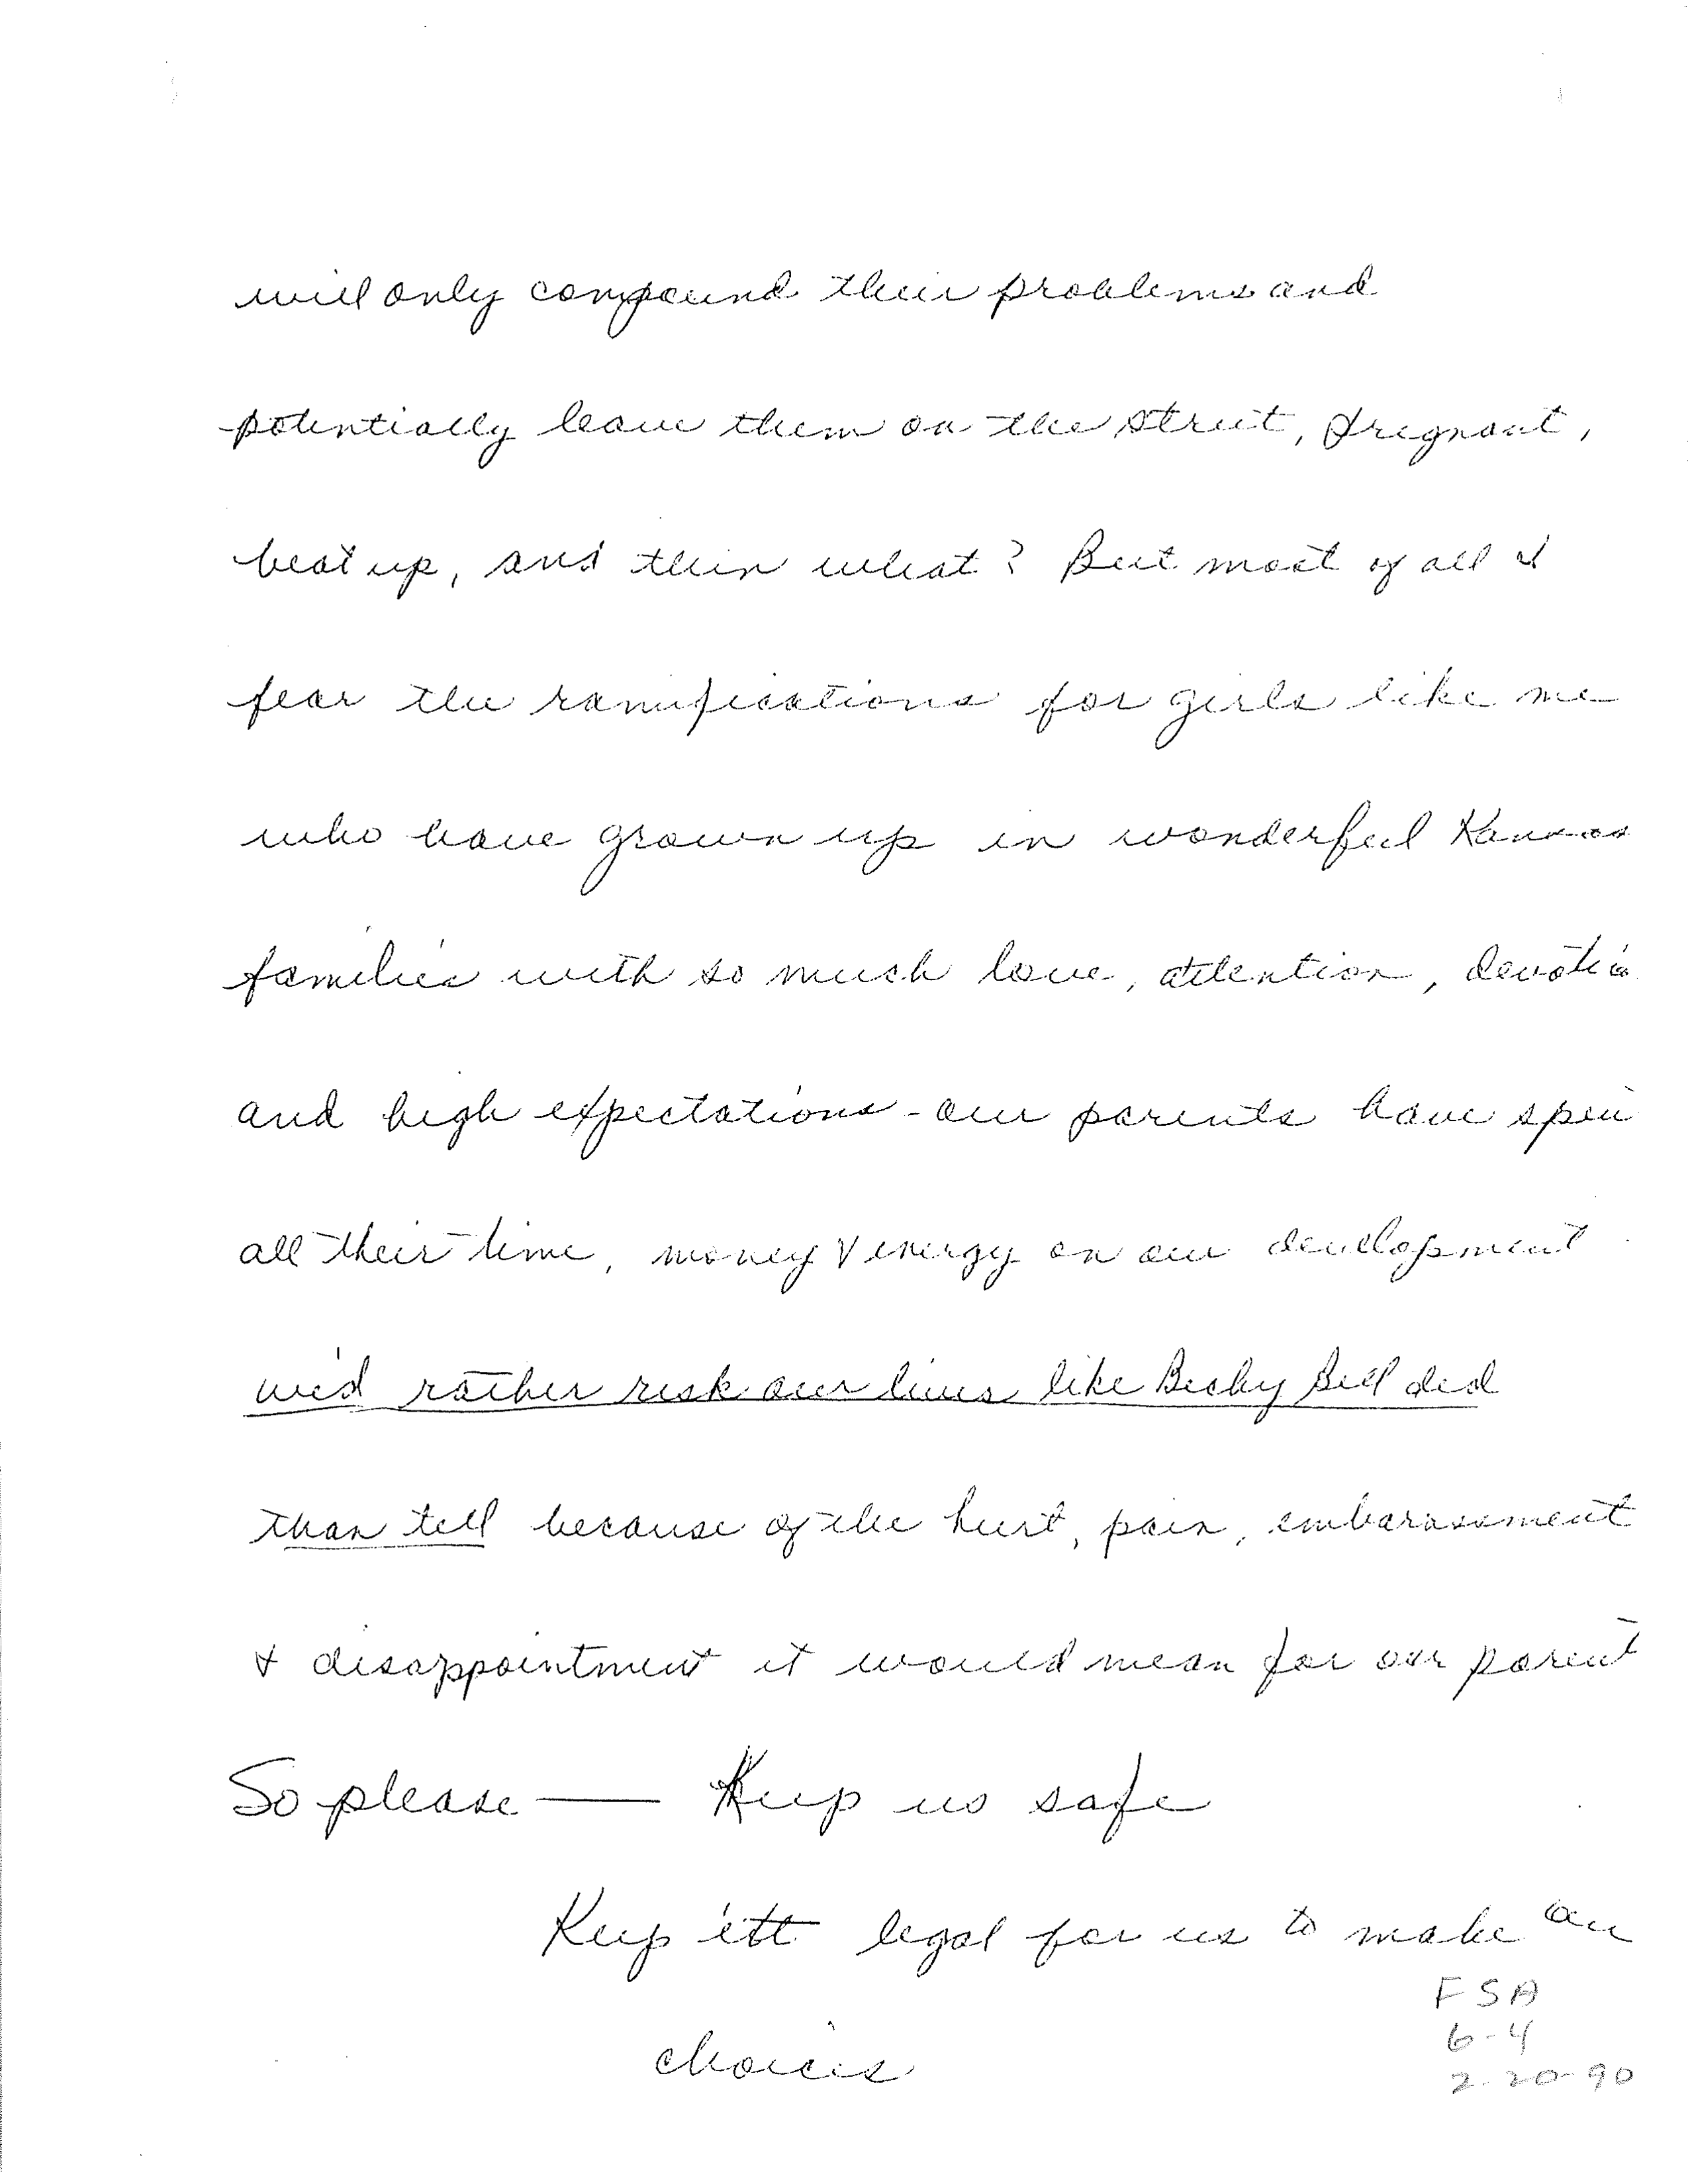 will only compound their problems and
potentially leave them on the street, pregnant,
beat up, and then what? But most of all I
fear the ramifications for girls like me
who have grown up in wonderful Kansas
families with so much love, attention, devotio
and high expectations - our parents have spen
all their time, money & energy on our development
we'd rather risk our lives like Becky Bell did
than tell because of the hurt, pain, embarassment
& disappointment it would mean for our parent
So please — Keep us safe
Keep it legal for us to make our
choices
FSA
6-4
2-20-90